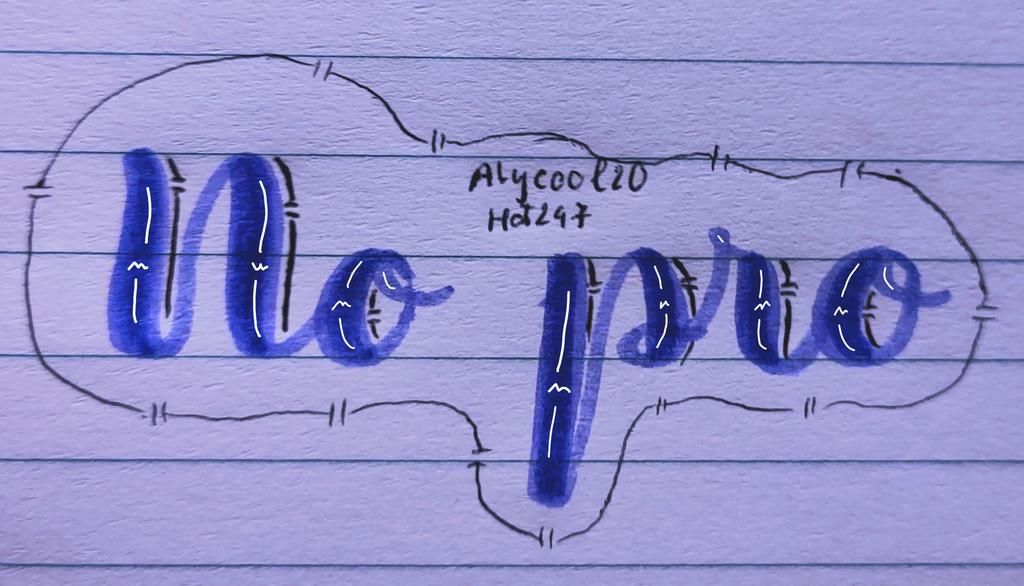 Alycool20
Hot247
No pro